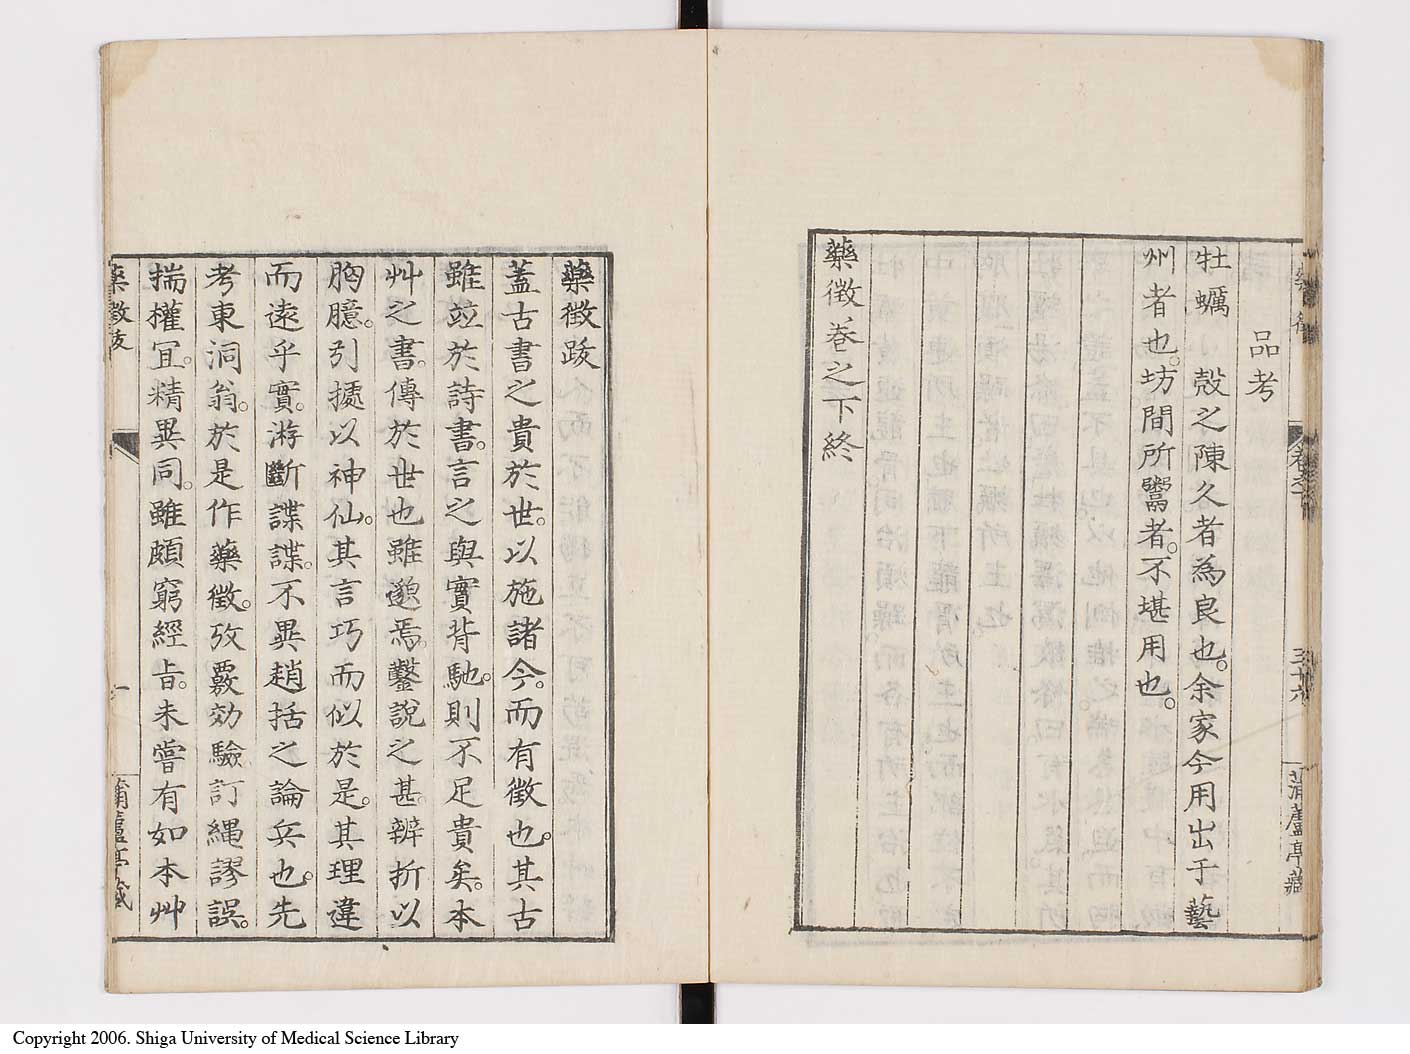 品考
牡蠣 殼之陳久者為良也。余家今用出于藝
州者也。坊間所鬻者。不堪用也。
藥徵卷之下終
三十六
蒲蘆亭藏
藥徵跋
蓋古書之貴於世。以施諸今。而有徵也。其古
雖竝於詩書。言之與實背馳。則不足貴矣。本
艸之書。傳於世也雖邈焉。鑿說之甚。辨折以
胸臆。引據以神仙。其言巧而似於是。其理違
而遠乎實。游斷諜諜。不異趙括之論兵也。先
考東洞翁。於是作藥徵。攷覈効驗訂繩謬誤。
揣權冝。精異同。雖頗窮經旨。未嘗有如本艸
藥徵跋
一
蒲蘆亭藏
Copyright 2006. Shiga University of Medical Science Library